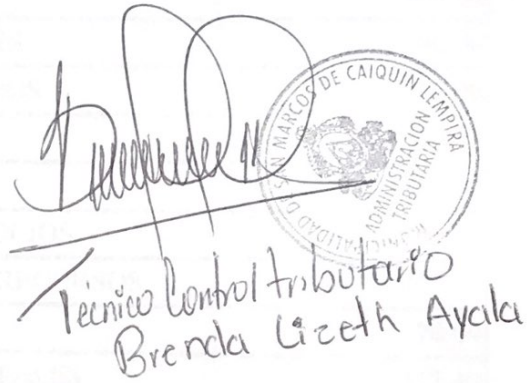 MUNICIPALIDAD DE SAN MARCOS DE CAIQUIN LEMPIRA
ADMINISTRACION
TRIBUTARIA
Técnico Control tributario
Brenda Lizeth Ayala